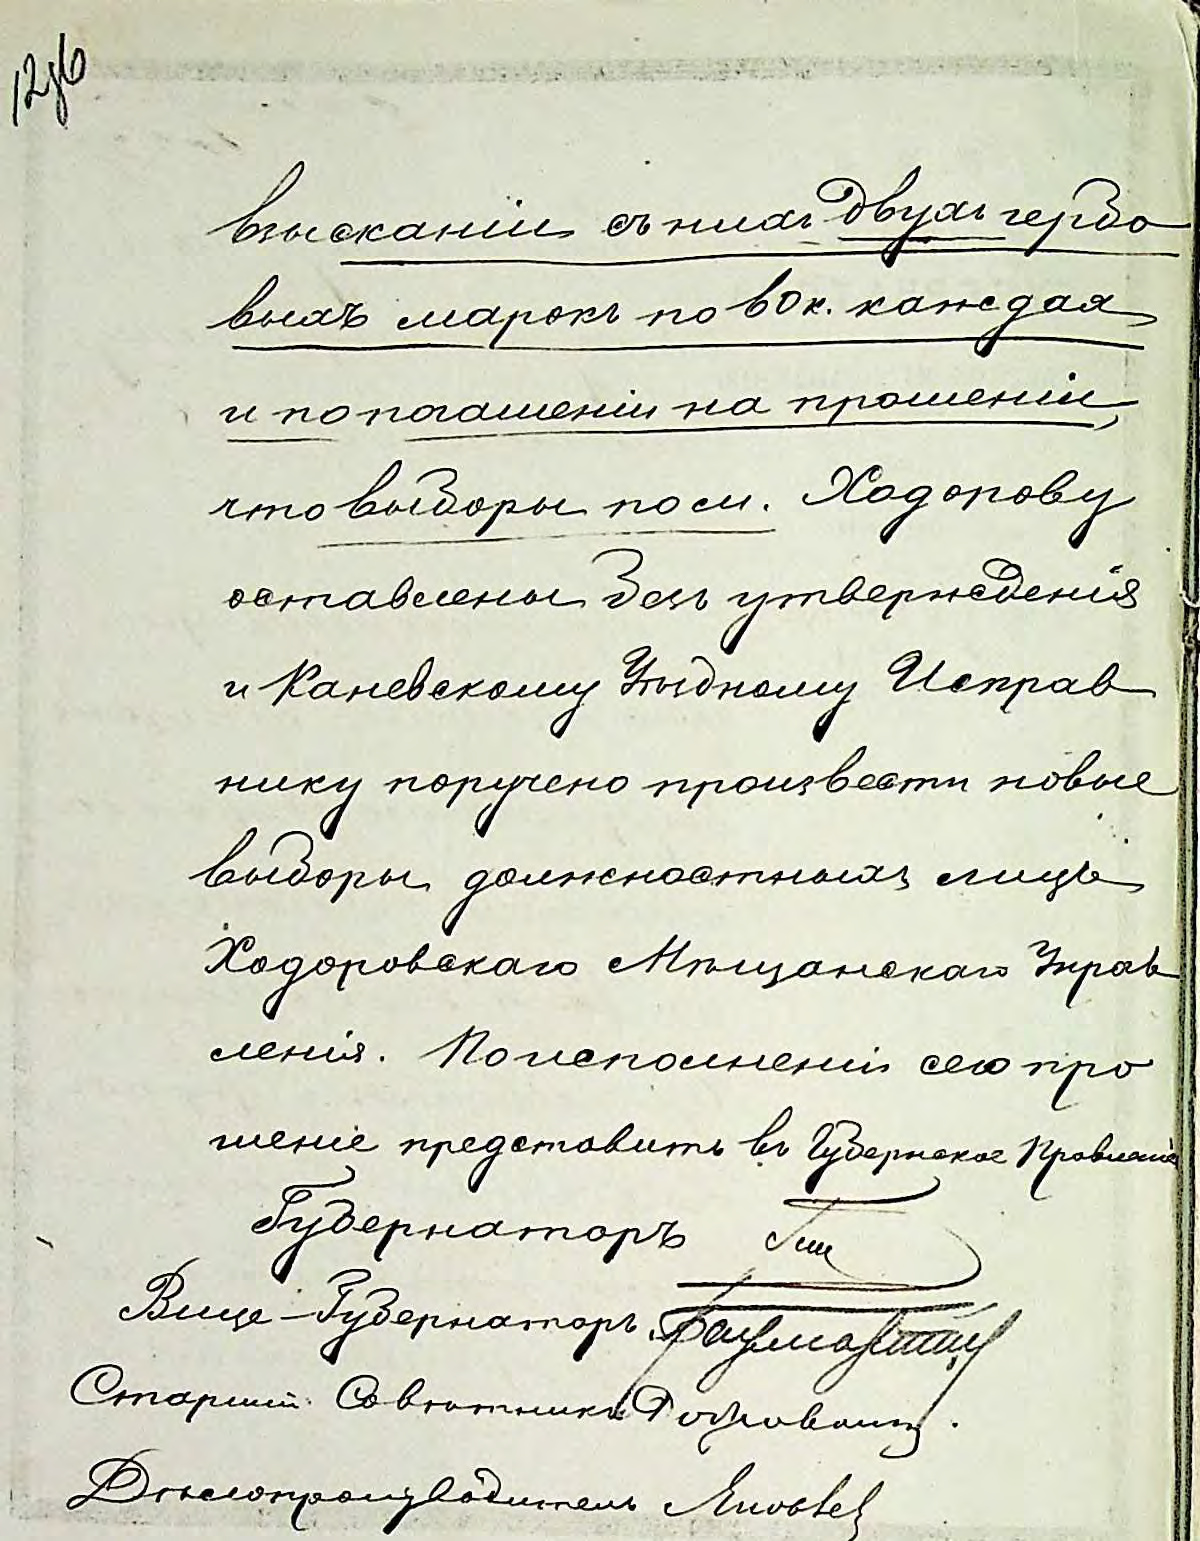 12об
взысканіи съ нихъ двухъ гербо
выхъ марокъ по 60 к. каждая
и по погашеніи на прошеніи,
что выборы по м. Ходорову
оставлены безъ утвержденія
и Каневскому Уѣздному Исправ
нику поручено произвести новые
выборы должностныхъ лицъ
Ходоровскаго Мѣщанскаго Управ
ленія. По исполненіи сего про
шеніе представить въ Губернское Правленіе
Губернаторъ
Вице-Губернаторъ
Старшій Совѣтникъ
Дѣлопроизводитель